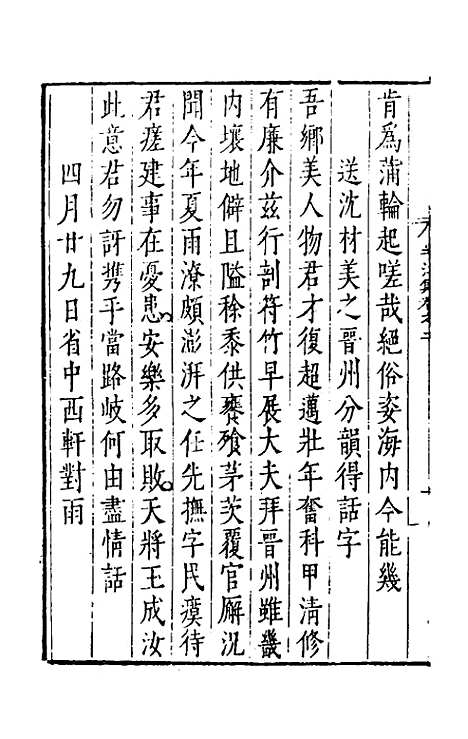 肯為蒲輪起嗟哉絕俗姿海內今能幾
送沈材美之晉州分韻得話字
吾鄉美人物君才復超邁壯年奮科甲清修
有廉介茲行剖符竹早展大夫拜晉州雖畿
內壤地僻且隘稌黍供饔飱茅茨覆官廨況
聞今年夏雨潦頗澎湃之任先撫字民瘼待
君瘥建事在憂患安樂多取敗天將王成汝
此意君勿訝携乎當路岐何由盡情話
四月廿九日省中西軒對雨